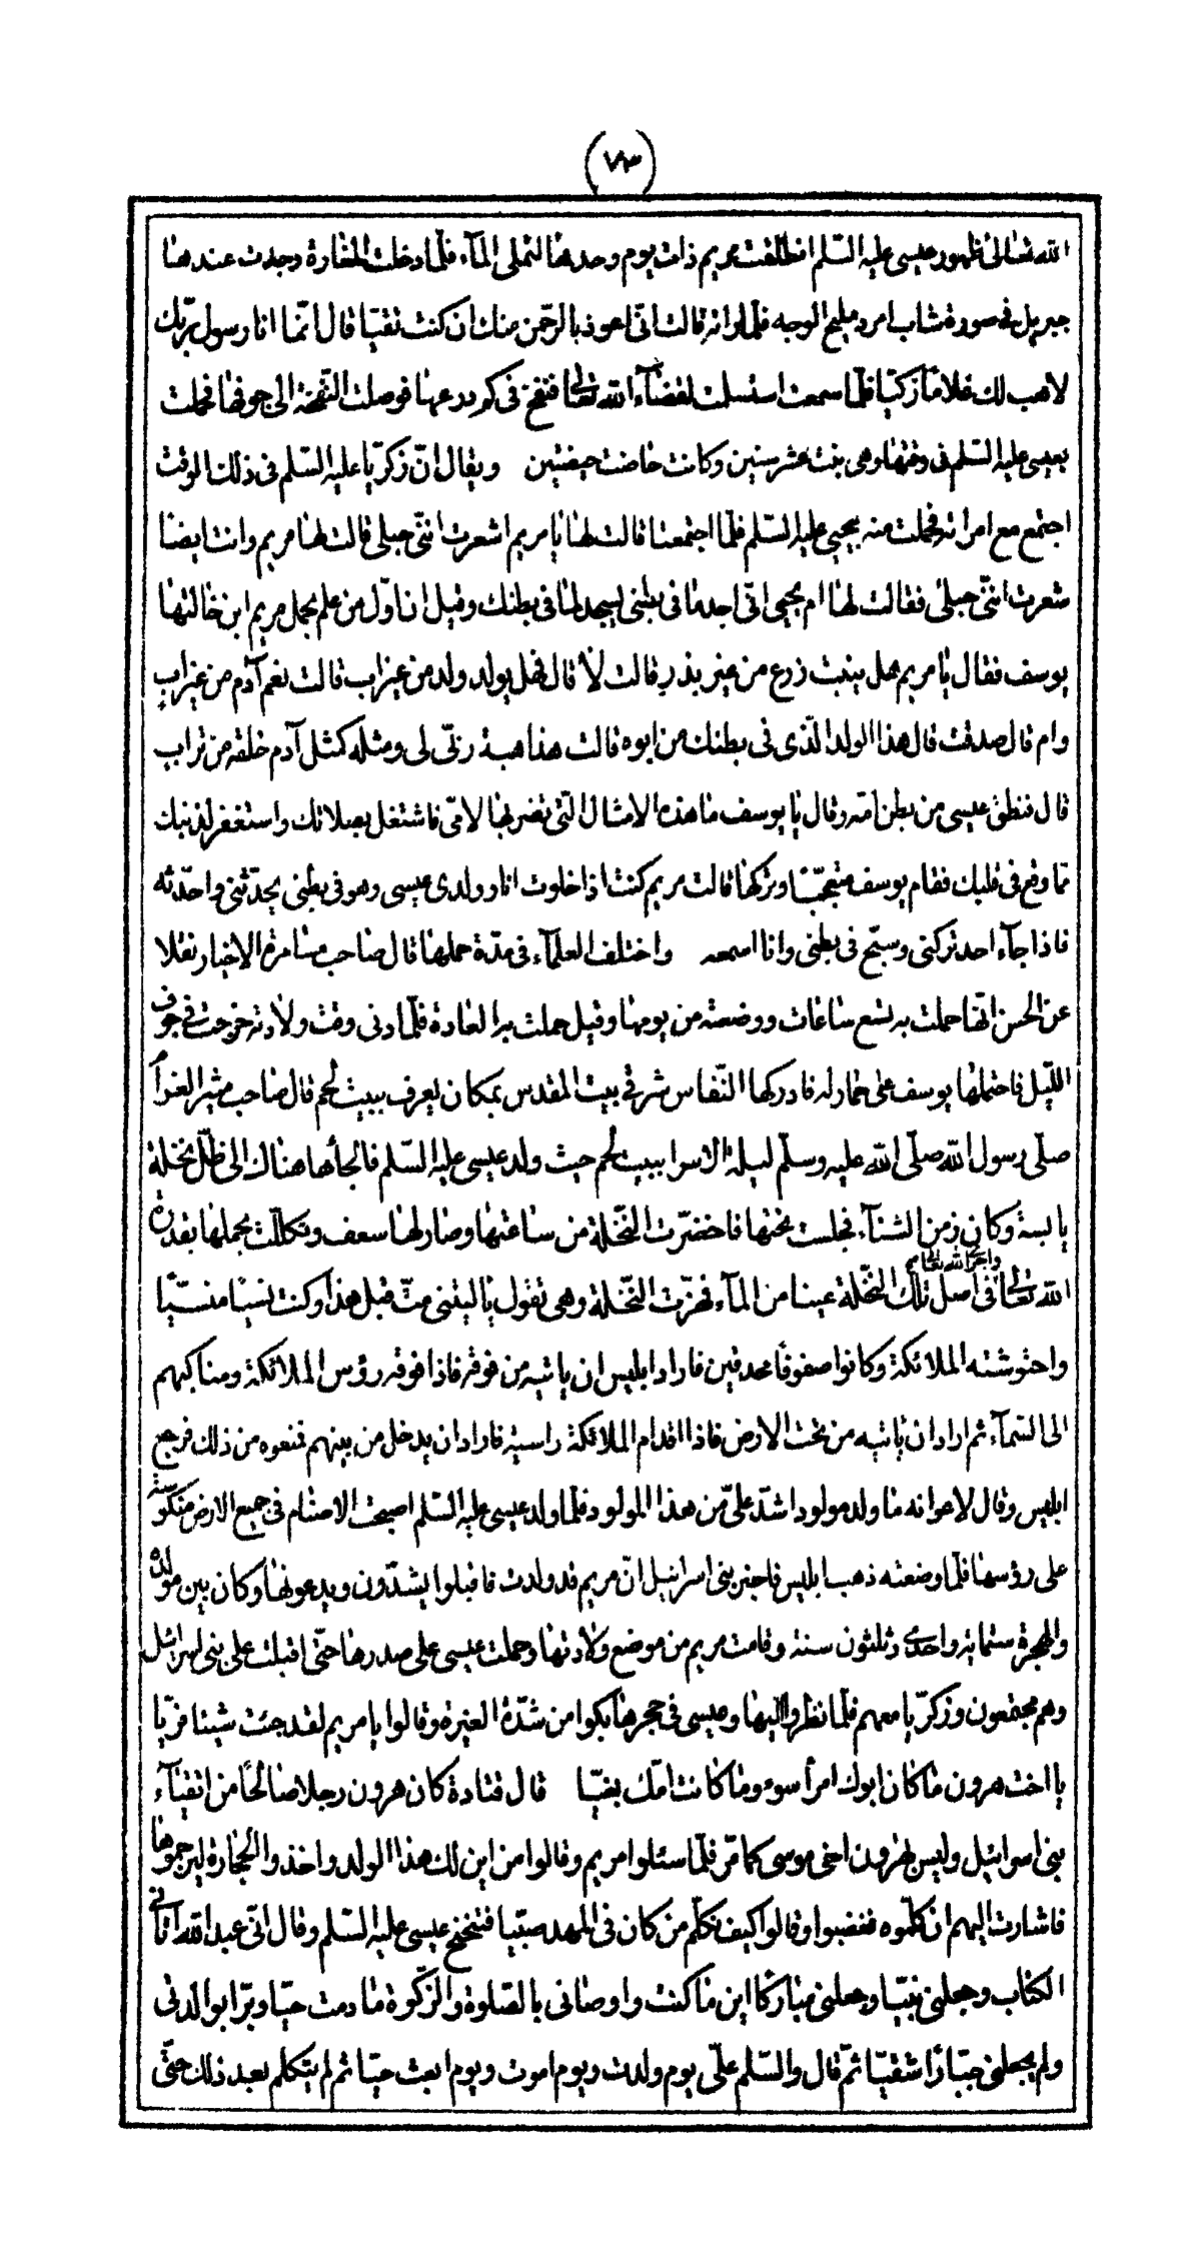 (٧٣)
الله تعالى ظهور عيسى عليه السّلم انطلقت مريم ذات يوم وحدها لتملى المآء فلمّا دخلت المغارة وجدت عندها
جبريل فى صورة شاب امرد مليح الوجه فلما راته قالت انّى اعوذ بالرّحمن منك ان كنت تقيّا قال انّما انا رسول ربّك
لاهب لك غلاما زكيّا فلمّا سمعت استسلمت لقضآء الله تعالى فنفخ فى كم درعها فوصلت النّفخة الى جوفها فحملت
بعيسى عليه السّلم فى وقتها وهى بنت عشر سنين وكانت حاضت حيضتين ويقال انّ زكريّا عليه السّلم فى ذلك الوقت
اجتمع مع امراته فحملت منه بيحيى عليه السّلم فلمّا اجتمعتا قالت لها يا مريم اشعرت انّنى حبلى قالت لها مريم وانت ايضا
شعرت انّنى حبلى فقالت لها ام يحيى انّى اجد ما فى بطنى يسجد لما فى بطنك وقيل ان اوّل من علم بحمل مريم ابن خالتها
يوسف فقال يا مريم هل ينبت زرع من غير بذر قالت لا قال فهل يولد ولد من غير اب قالت نعم آدم من غير اب
وام قال صدقت قال هذا الولد الّذى فى بطنك من ابوه قالت هذا هبة ربّى لى ومثله كمثل آدم خلقه من تراب
قال فنطق عيسى من بطن امّه وقال يا يوسف ما هذه الامثال الّتى تضربها لامّى فاشتغل بصلاتك واستغفر لذنبك
ممّا وقع فى قلبك فقام يوسف متعجّبا وتركها قالت مريم كنت اذا خلوت انا وولدى عيسى وهو فى بطنى يحدّثنى واحدّثه
فاذا جآء احد تركنى وسبّح فى بطنى وانا اسمعه واختلف العلمآء فى مدّة حملها قال صاحب مسامرة الاخبار نقلا
عن الحسن انّها حملت به تسع ساعات ووضعته من يومها وقيل حملت به العادة فلمّا دنى وقت ولادته خرجت فى جوف
اللّيل فاحتملها يوسف على حمار له فادركها النّفاس شرقى بيت المقدس بمكان يعرف ببيت لحم قال صاحب مثير الغرام
صلّى رسول الله صلّى الله عليه وسلّم ليلة الاسرا ببيت لحم حيث ولد عيسى عليه السّلم فالجأها هناك الى ظلّ نخلة
يابسة وكان زمن الشتآء فجلست تحتها فاخضرّت النّخلة من ساعتها وصار لها سعف وتكلّلت بحملها بقدرة
الله تعالى واجرى الله تعالى فى اصل تلك النّخلة عينا من المآء فهزّت النّخلة وهى تقول يا ليتنى متّ قبل هذا وكنت نسيا منسيّا
واحتوشته الملائكة وكانوا صفوفا محدقين فارادا بليس ان ياتيه من فوقه فاذا فوقه رؤس الملائكة ومناكبهم
الى السّمآء ثم اراد ان ياتيه من تحت الارض فاذا اقدام الملائكة راسية فاراد ان يدخل من بينهم فمنعوه من ذلك فرجع
ابليس وقال لاعوانه ما ولد مولود اشدّ علىّ من هذا المولود فلمّا ولد عيسى عليه السّلم اصبحت الاصنام فى جميع الارض منكوسة
على رؤسها فلمّا وضعته ذهب ابليس فاخبر بنى اسرائيل انّ مريم قد ولدت فاقبلوا يشدّون ويدعونها وكان بين مولده
والهجرة ستماية واحدى وثلثون سنة وقامت مريم من موضع ولادتها وحملت عيسى على صدرها حتّى اقبلت على بنى اسرائيل
وهم مجتمعون وزكريّا معهم فلمّا نظروا اليها وعيسى فى حجرها بكوا من شدّة الغيرة وقالوا يا مريم لقد جئت شيئا فريّا
يا اخت هرون ما كان ابوك امرأ سوء وما كانت امّك بغيّا قال قتادة كان هرون رجلا صالحا من اتقيآء
بنى اسرائيل وليس بهرون اخى موسى كما مرّ فلمّا سئلوا مريم وقالوا من اين لك هذا الولد واخذوا الحجارة ليرجموها
فاشارت اليهم ان كلّموه فغضبوا وقالوا كيف نكلّم من كان فى المهد صبيّا فتنحنح عيسى عليه السّلم وقال انّى عبد الله آتانى
الكتاب وجعلنى نبيّا وجعلنى مباركا اين ما كنت واوصانى بالصّلوة والزّكوة ما دمت حيّا وبرّا بوالدتى
ولم يجعلنى جبّارا شقيّا ثمّ قال والسّلم علىّ يوم ولدت ويوم اموت ويوم ابعث حيّا ثم لم يتكلم بعد ذلك حتّى